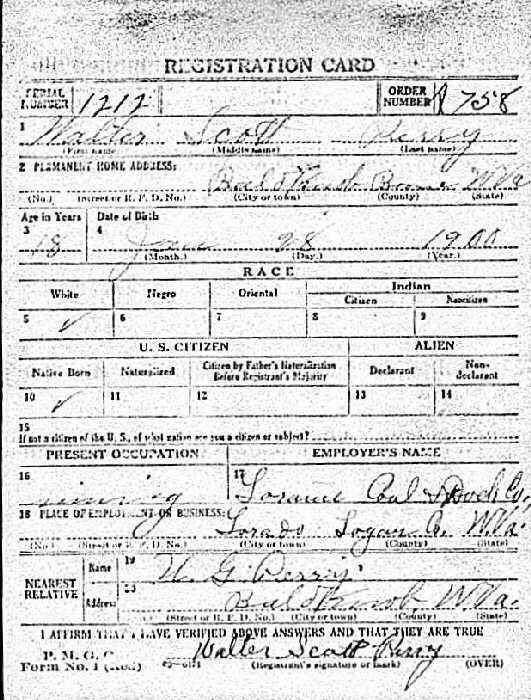 REGISTRATION CARD
SERIAL NUMBER 1212 ORDER NUMBER 758
1 Walter Scott Perry
(First name) (Middle name) (Last name)
2 PERMANENT HOME ADDRESS:
Bald Knob Boone W Va
(No.) (Street or R. F. D. No.) (City or town) (County) (State)
Age in Years Date of Birth
3 4
18 28 1900
(Month.) (Day.) (Year.)
RACE
White Negro Oriental Indian
Citizen Noncitizen
5 ✓ 6 7 8 9
U. S. CITIZEN ALIEN
Native Born Naturalized Citizen by Father's Naturalization Before Registrant's Majority Declarant Non-declarant
10 ✓ 11 12 13 14
15
If not a citizen of the U. S., of what nation are you a citizen or subject?
PRESENT OCCUPATION EMPLOYER'S NAME
16 17
mining Coal & Dock Co.
18 PLACE OF EMPLOYMENT OR BUSINESS:
Lorado Logan Co. W.Va.
(No.) (Street or R. F. D. No.) (City or town) (County) (State)
NEAREST RELATIVE
Name 19 G Perry
Address 20 Bald Knob, W Va.
(No.) (Street or R. F. D. No.) (City or town) (County) (State)
I AFFIRM THAT I HAVE VERIFIED ABOVE ANSWERS AND THAT THEY ARE TRUE
P. M. G. O.
Form No. 1 (Red) Walter Scott Perry
(Registrant's signature or mark) (OVER)